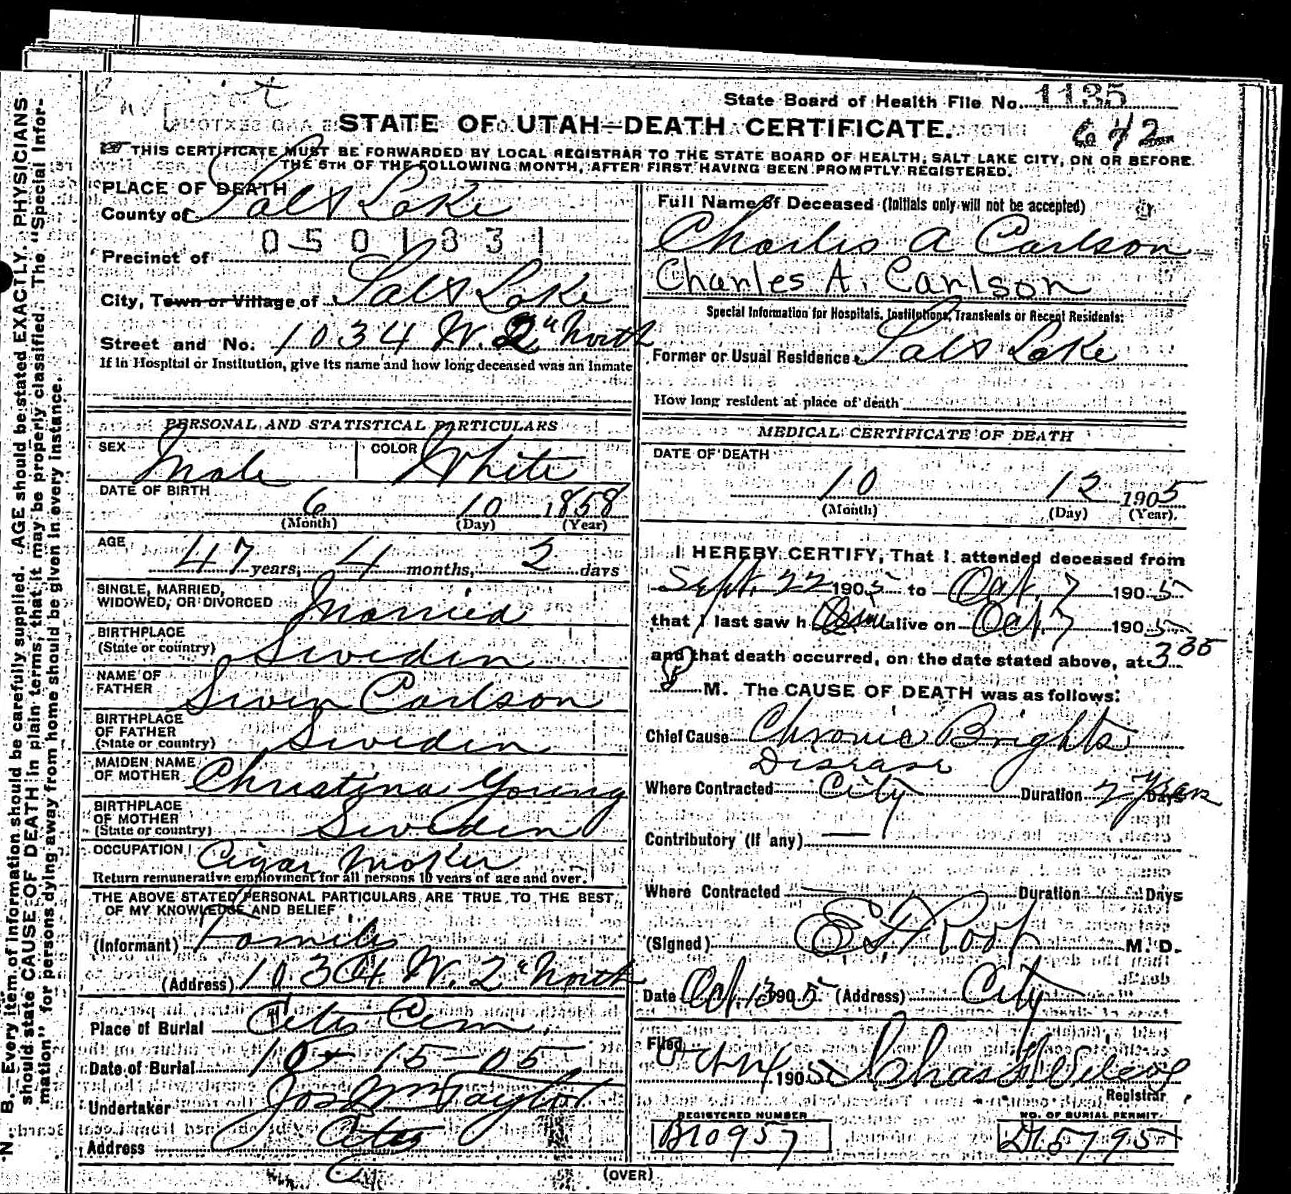 State Board of Health File No. 1135
642
STATE OF UTAH—DEATH CERTIFICATE.
THIS CERTIFICATE MUST BE FORWARDED BY LOCAL REGISTRAR TO THE STATE BOARD OF HEALTH, SALT LAKE CITY, ON OR BEFORE
THE 5TH OF THE FOLLOWING MONTH, AFTER FIRST HAVING BEEN PROMPTLY REGISTERED.
PLACE OF DEATH
County of Salt Lake
0501831
Precinct of
City, Town or Village of Salt Lake
Street and No. 1034 W. 2" North
If in Hospital or Institution, give its name and how long deceased was an inmate
PERSONAL AND STATISTICAL PARTICULARS
SEX Male COLOR White
DATE OF BIRTH 6 10 1858
(Month) (Day) (Year)
AGE 47 years, 4 months, 2 days
SINGLE, MARRIED,
WIDOWED, OR DIVORCED Married
BIRTHPLACE
(State or country) Sweden
NAME OF
FATHER Swen Carlson
BIRTHPLACE
OF FATHER
(State or country) Sweden
MAIDEN NAME
OF MOTHER Christina Young
BIRTHPLACE
OF MOTHER
(State or country) Sweden
OCCUPATION Cigar Maker
Return remunerative employment for all persons 10 years of age and over.
THE ABOVE STATED PERSONAL PARTICULARS ARE TRUE TO THE BEST
OF MY KNOWLEDGE AND BELIEF
(Informant) Family
(Address) 1034 W. 2" North
Place of Burial City Cem
Date of Burial 10 - 15 - 05
Undertaker Jos Wm Taylor
Address City
Full Name of Deceased (Initials only will not be accepted)
Charles A Carlson
Charles A. Carlson
Special Information for Hospitals, Institutions, Transients or Recent Residents:
Former or Usual Residence Salt Lake
How long resident at place of death
MEDICAL CERTIFICATE OF DEATH
DATE OF DEATH
10 12 1905
(Month) (Day) (Year).
I HEREBY CERTIFY, That I attended deceased from
Sept. 22 1905 to Oct. 7 1905
that I last saw h alive on Oct 7 1905
and that death occurred, on the date stated above, at 3
M. The CAUSE OF DEATH was as follows:
Chief Cause Chronic Brights
Disease
Where Contracted City Duration 2 Years
Contributory (if any)
Where Contracted Duration Days
(Signed) M. D.
Date Oct. 13 1905 (Address) City
Filed Oct 14 1905
Registrar
REGISTERED NUMBER
B10957
NO. OF BURIAL PERMIT.
D15795
(OVER)
N. B.—Every item of information should be carefully supplied. AGE should be stated EXACTLY. PHYSICIANS
should state CAUSE OF DEATH in plain terms, that it may be properly classified. The "Special Infor-
mation" for persons dying away from home should be given in every instance.